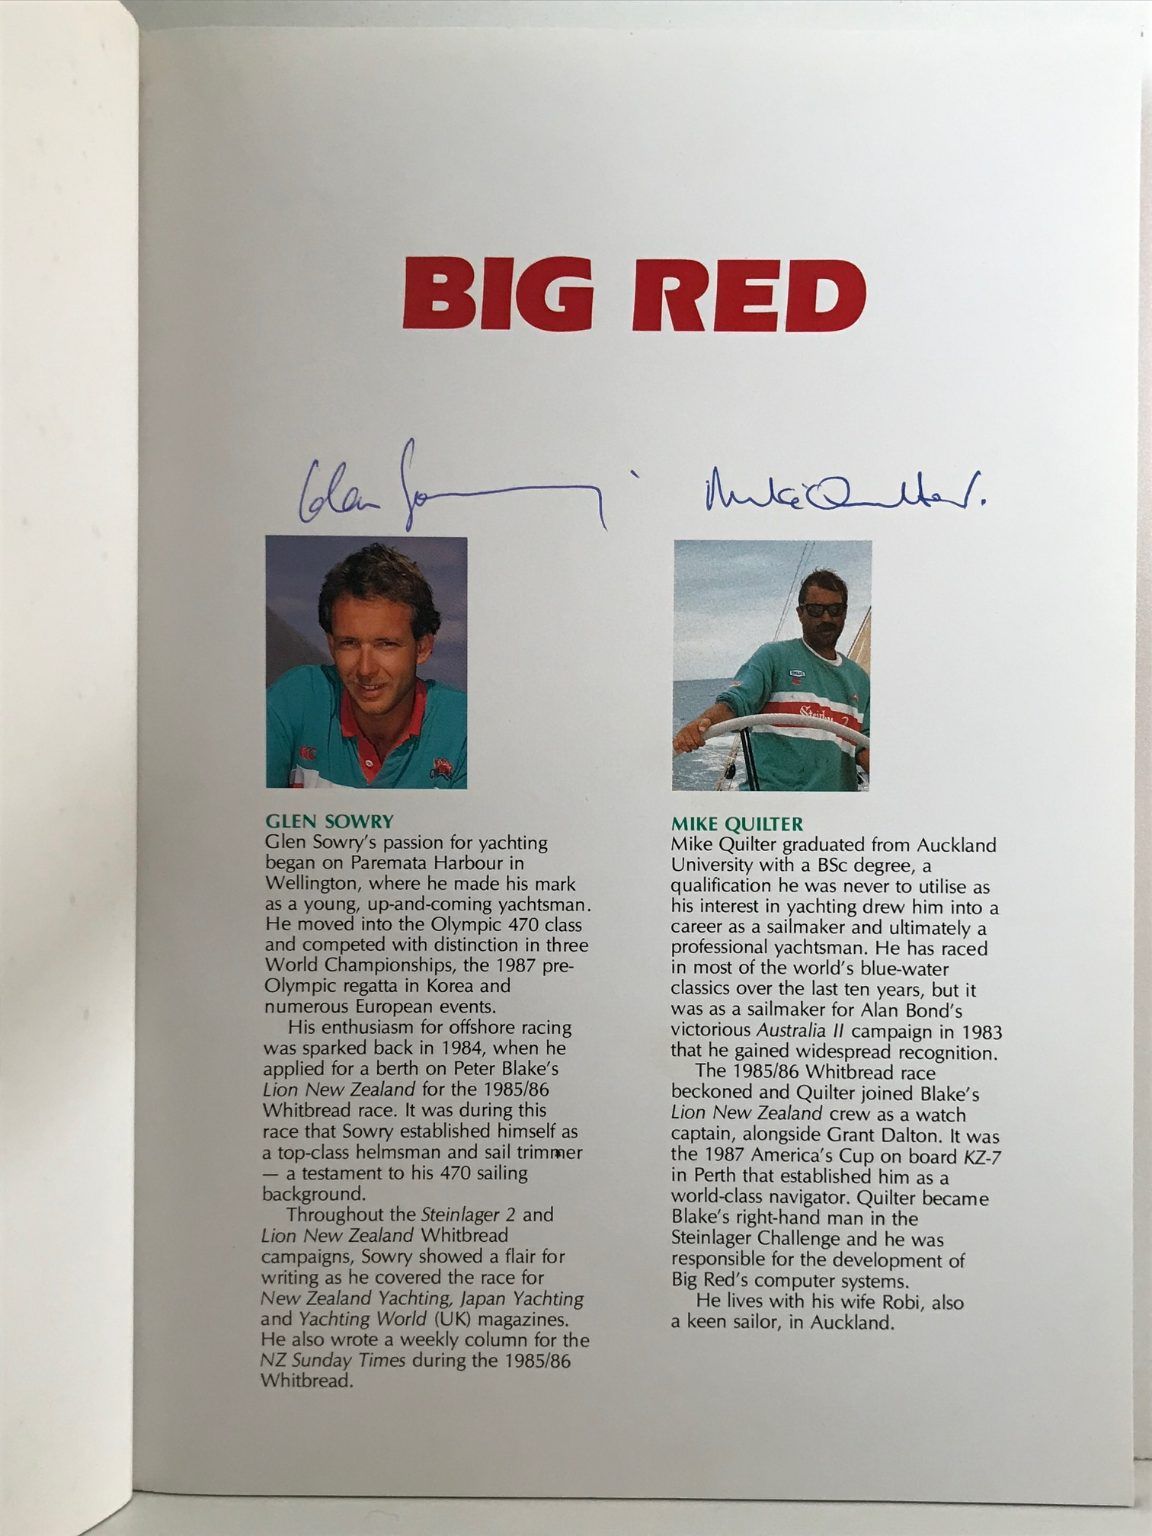 BIG RED
Glen Sowry
Mike Quilter.
Steinlager 2
GLEN SOWRY
Glen Sowry's passion for yachting
began on Paremata Harbour in
Wellington, where he made his mark
as a young, up-and-coming yachtsman.
He moved into the Olympic 470 class
and competed with distinction in three
World Championships, the 1987 pre-
Olympic regatta in Korea and
numerous European events.
His enthusiasm for offshore racing
was sparked back in 1984, when he
applied for a berth on Peter Blake's
Lion New Zealand for the 1985/86
Whitbread race. It was during this
race that Sowry established himself as
a top-class helmsman and sail trimmer
— a testament to his 470 sailing
background.
Throughout the Steinlager 2 and
Lion New Zealand Whitbread
campaigns, Sowry showed a flair for
writing as he covered the race for
New Zealand Yachting, Japan Yachting
and Yachting World (UK) magazines.
He also wrote a weekly column for the
NZ Sunday Times during the 1985/86
Whitbread.
MIKE QUILTER
Mike Quilter graduated from Auckland
University with a BSc degree, a
qualification he was never to utilise as
his interest in yachting drew him into a
career as a sailmaker and ultimately a
professional yachtsman. He has raced
in most of the world's blue-water
classics over the last ten years, but it
was as a sailmaker for Alan Bond's
victorious Australia II campaign in 1983
that he gained widespread recognition.
The 1985/86 Whitbread race
beckoned and Quilter joined Blake's
Lion New Zealand crew as a watch
captain, alongside Grant Dalton. It was
the 1987 America's Cup on board KZ-7
in Perth that established him as a
world-class navigator. Quilter became
Blake's right-hand man in the
Steinlager Challenge and he was
responsible for the development of
Big Red's computer systems.
He lives with his wife Robi, also
a keen sailor, in Auckland.